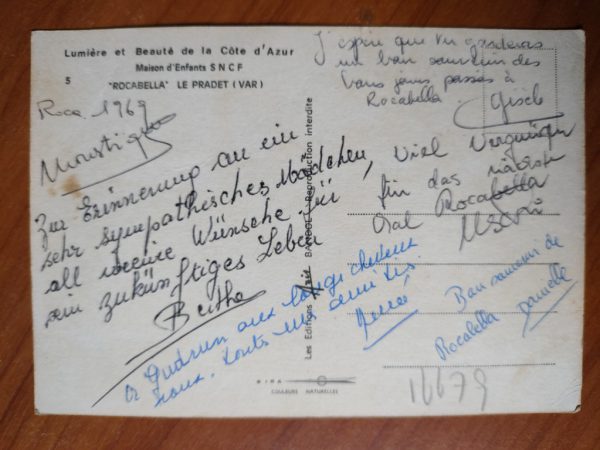 Lumière et Beauté de la Côte d'Azur
Maison d'Enfants SNCF
5 "ROCABELLA" LE PRADET (VAR)
Roca 1969
Moustique
J'espère que tu garderas
un bon souvenir des
bons jours passés à
Rocabella
Gisèle
Zur Erinnerung an ein
sehr sympathisches Mädchen,
all meine Wünsche für
sein zukünftiges Leben
Berthe
Viel Vergnügen
für das nächste
Mal Rocabella
Les Editions BARDOU Reproduction interdite
à Gudrun aux longs cheveux
roux. toute mon amitié.
Bon souvenir de
Rocabella
Danielle
MIRA
COULEURS NATURELLES
16679